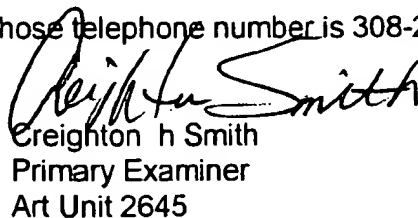 hose telephone number is 308-2
Creighton Smith
Creighton h Smith
Primary Examiner
Art Unit 2645